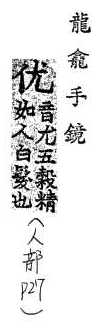 龍龕手鏡
优音尤五穀精
如人白髮也
(人部
P27)